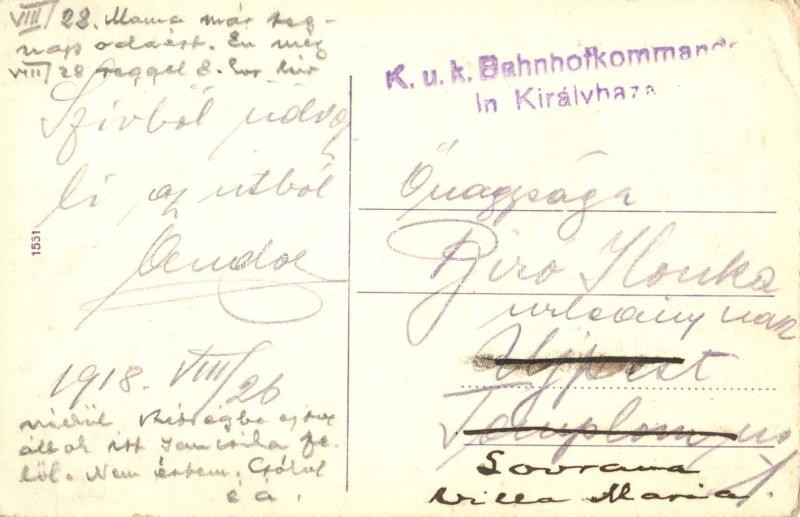 VIII/28. Mama már teg-
nap odaért. Én még
VIII/28 reggel 8. óra hír
Szívből üdvöz
li az útból
Andor
1918. VIII/26
nélkül kétségbe esve
állok itt Jancsika fe-
lől. Nem értem. Csókol
éa.
1551
K. u. k. Bahnhofkommando
in Királyháza
Őnagysága
Biró Ilonka
urleány nak
Ujpest
Templom u
Sovrana
Villa Maria